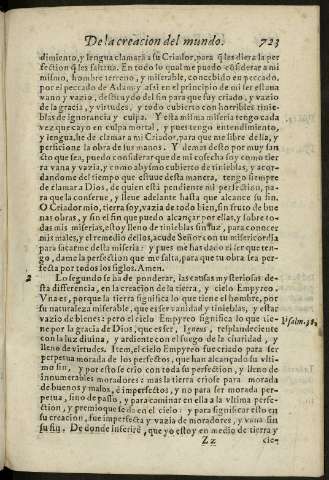 De la creacion del mundo. 723
dimiento, y lengua clamara a su Criador, para q̃ les diera la per
fection q̃ les faltaua. En todo lo qual me puedo cõsiderar a mi
mismo, hombre terreno, y miserable, concebido en peccado,
por el peccado de Adam: y assi en el principio de mi ser estaua
vano y vazio, destituydo del fin para que fuy criado, y vazio
de la gracia, y virtudes, y todo cubierto con horribles tinie-
blas de ignorancia y culpa. Y esta misma miseria tengo cada
vez que cayo en culpa mortal, y pues tengo entendimiento,
y lengua, he de clamar a mi Criador, para que me libre della, y
perficione la obra de sus manos. Y demas desto por muy san
cto que sea, puedo considerar que de mi cosecha soy como tier
ra vana y vazia, y como abysmo cubierto de tinieblas, y acor-
dandome del tiempo que estuue desta manera, tengo siempre
de clamar a Dios, de quien està pendiente mi perfection, pa-
ra que la conserue, y lleue adelante hasta que alcance su fin.
O Criador mio, tierra soy, vazia de todo bien, sin fruto de bue
nas obras, y sin el fin que puedo alcançar por ellas, y sobre to-
das mis miserias, estoy lleno de tinieblas sin luz, para conocer
mis males, y el remedio dellos, acude Señor con tu misericordia
para sacarme desta miseria: y pues me has dado el ser que ten-
go, dame la perfection que me falta, para que tu obra sea per-
fecta por todos los siglos. Amen.
2 Lo segundo se ha de ponderar, las causas mysteriosas de-
sta differencia, en la creacion de la tierra, y cielo Empyreo.
Vna es, porque la tierra significa lo que tiene el hombre, por
su naturaleza miserable, que es ser vanidad y tinieblas, y estar
vazio de bienes: pero el cielo Empyreo significa lo que tie-
ne por la gracia de Dios, que es ser, Igneus, resplandeciente
con la luz diuina, y ardiente con el fuego de la charidad, y
lleno de virtudes. Item, el cielo Empyreo fue criado para ser
perpetua morada de los perfectos, que han alcançado su vlti-
mo fin, y por esto se crio con toda su perfection, y lleno de
innumerables moradores: mas la tierra criose para morada
de buenos y malos, è imperfectos, y no para ser morada per-
petua, sino de passo, y para caminar en ella a la vltima perfe-
ction, y premio que se da en el cielo: y para significar esto en
su creacion, fue imperfecta y vazia de moradores, y vana sin
su fin. De donde inferirè, que yo estoy en medio de tierra y
Zz cie-
Psalm. 38.